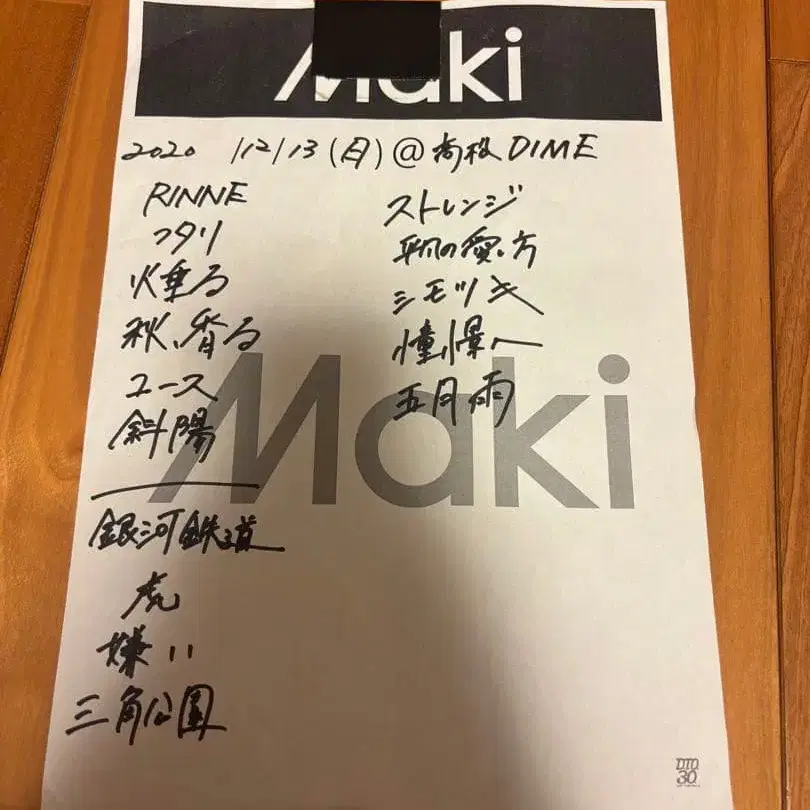 Maki
2020 /12/13(日)@高松DIME
RINNE
フタリ
火垂る
秋、香る
ユース
斜陽
銀河鉄道
虎
嫌い
三角公園
ストレンジ
平凡の愛し方
シモツキ
憧憬へ
五月雨
Maki
DTO
30